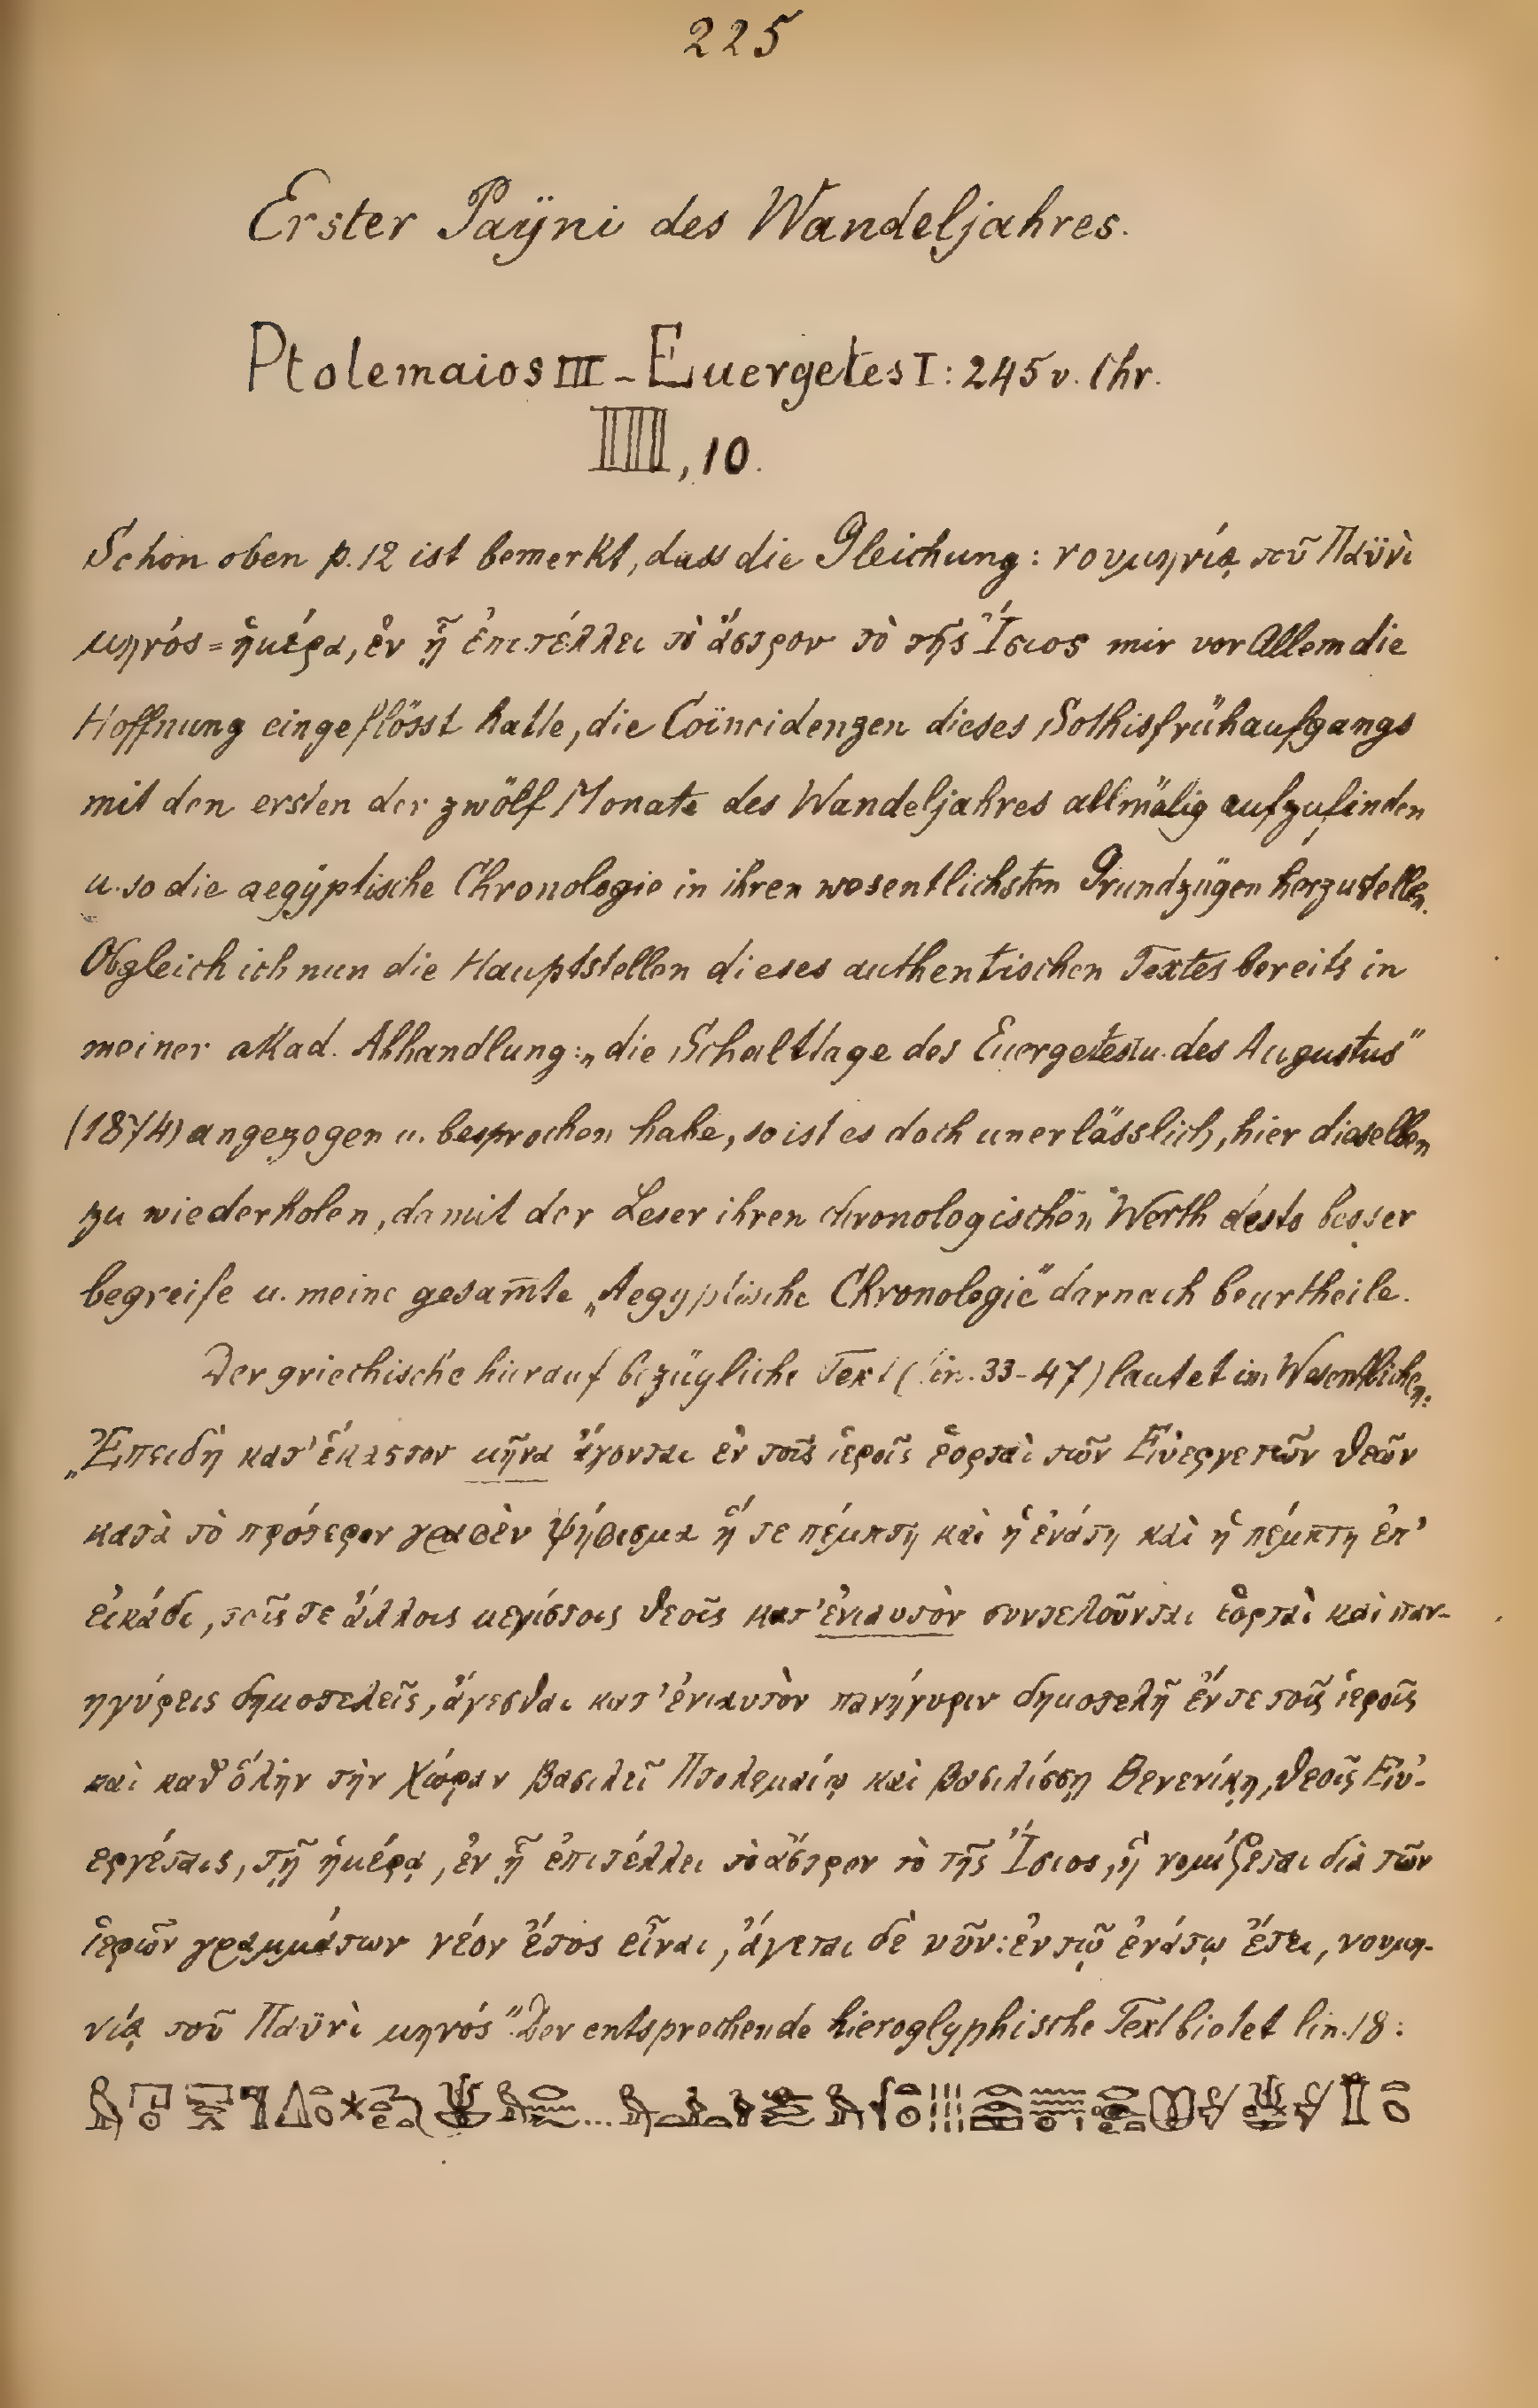 225
Erster Paÿni des Wandeljahres.
Ptolemaios III - Euergetes I: 245 v. Chr.
IIII, 10.
Schon oben p. 12 ist bemerkt, dass die Gleichung: νουμηνίᾳ τοῦ Παϋνὶ
μηνός = ἡμέρα, ἐν ᾗ ἐπιτέλλει τὸ ἄστρον τὸ τῆς Ἴσιος mir vor Allem die
Hoffnung eingeflösst hatte, die Coïncidenzen dieses Sothisfrühaufgangs
mit den ersten der zwölf Monate des Wandeljahres allmälig aufzufinden
u. so die aegyptische Chronologie in ihren wesentlichsten Grundzügen herzustellen.
Obgleich ich nun die Hauptstellen dieses authentischen Textes bereits in
meiner akad. Abhandlung: „die Schalttage des Euergetes I u. des Augustus"
(1874) angezogen u. besprochen habe, so ist es doch unerlässlich, hier dieselben
zu wiederholen, damit der Leser ihren chronologischen Werth desto besser
begreife u. meine gesam̄te „Aegyptische Chronologie" darnach beurtheile.
Der griechische hierauf bezügliche Text (lin. 33-47) lautet im Wesentlichen:
„Ἐπειδὴ κατ' ἕκαστον μῆνα ἄγονται ἐν τοῖς ἱεροῖς ἑορταὶ τῶν Εὐεργετῶν θεῶν
κατὰ τὸ πρότερον γραφὲν ψήφισμα ἥ τε πέμπτη καὶ ἡ ἐνάτη καὶ ἡ πέμπτη ἐπ'
εἰκάδι, τοῖς τε ἄλλοις μεγίστοις θεοῖς κατ' ἐνιαυτὸν συντελοῦνται ἑορταὶ καὶ παν-
ηγύρεις δημοτελεῖς, ἄγεσθαι κατ' ἐνιαυτὸν πανήγυριν δημοτελῆ ἔν τε τοῖς ἱεροῖς
καὶ καθ' ὅλην τὴν χώραν βασιλεῖ Πτολεμαίῳ καὶ βασιλίσσῃ Βερενίκῃ, θεοῖς Εὐ-
εργέταις, τῇ ἡμέρᾳ, ἐν ᾗ ἐπιτέλλει τὸ ἄστρον τὸ τῆς Ἴσιος, ἣ νομίζεται διὰ τῶν
ἱερῶν γραμμάτων νέον ἔτος εἶναι, ἄγεται δὲ νῦν: ἐν τῷ ἐνάτῳ ἔτει, νουμη-
νίᾳ τοῦ Παϋνὶ μηνός". Der entsprechende hieroglyphische Text bietet lin. 18: